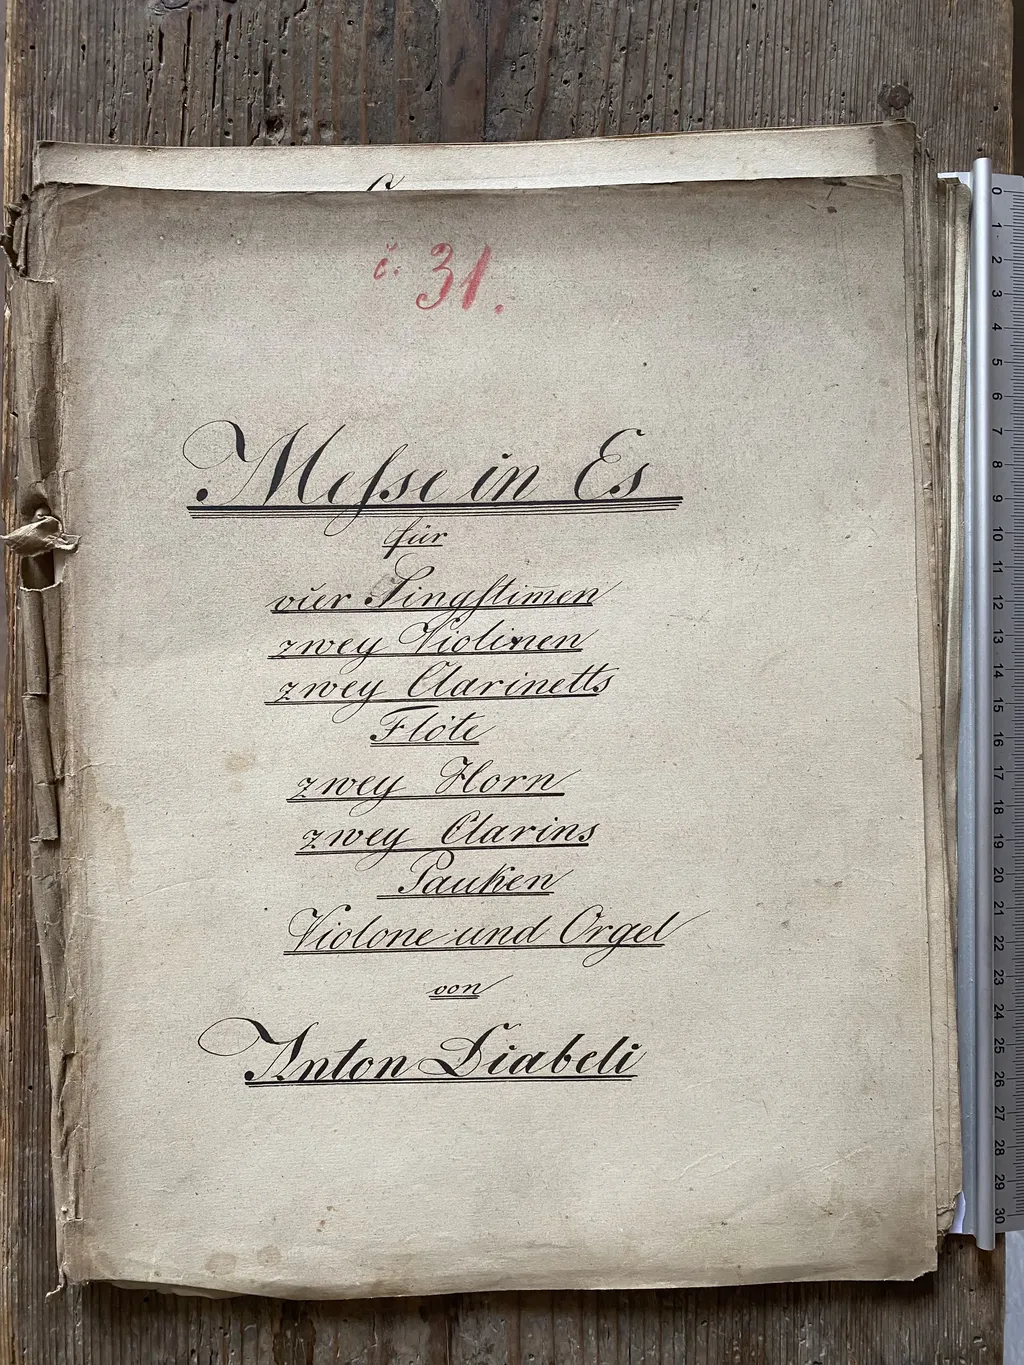 č. 31.
Messe in Es
für
vier Singstim̄en
zwey Violinen
zwey Clarinetts
Flöte
zwey Horn
zwey Clarins
Pauken
Violone und Orgel
von
Anton Diabeli
0 1 2 3 4 5 6 7 8 9 10 11 12 13 14 15 16 17 18 19 20 21 22 23 24 25 26 27 28 29 30